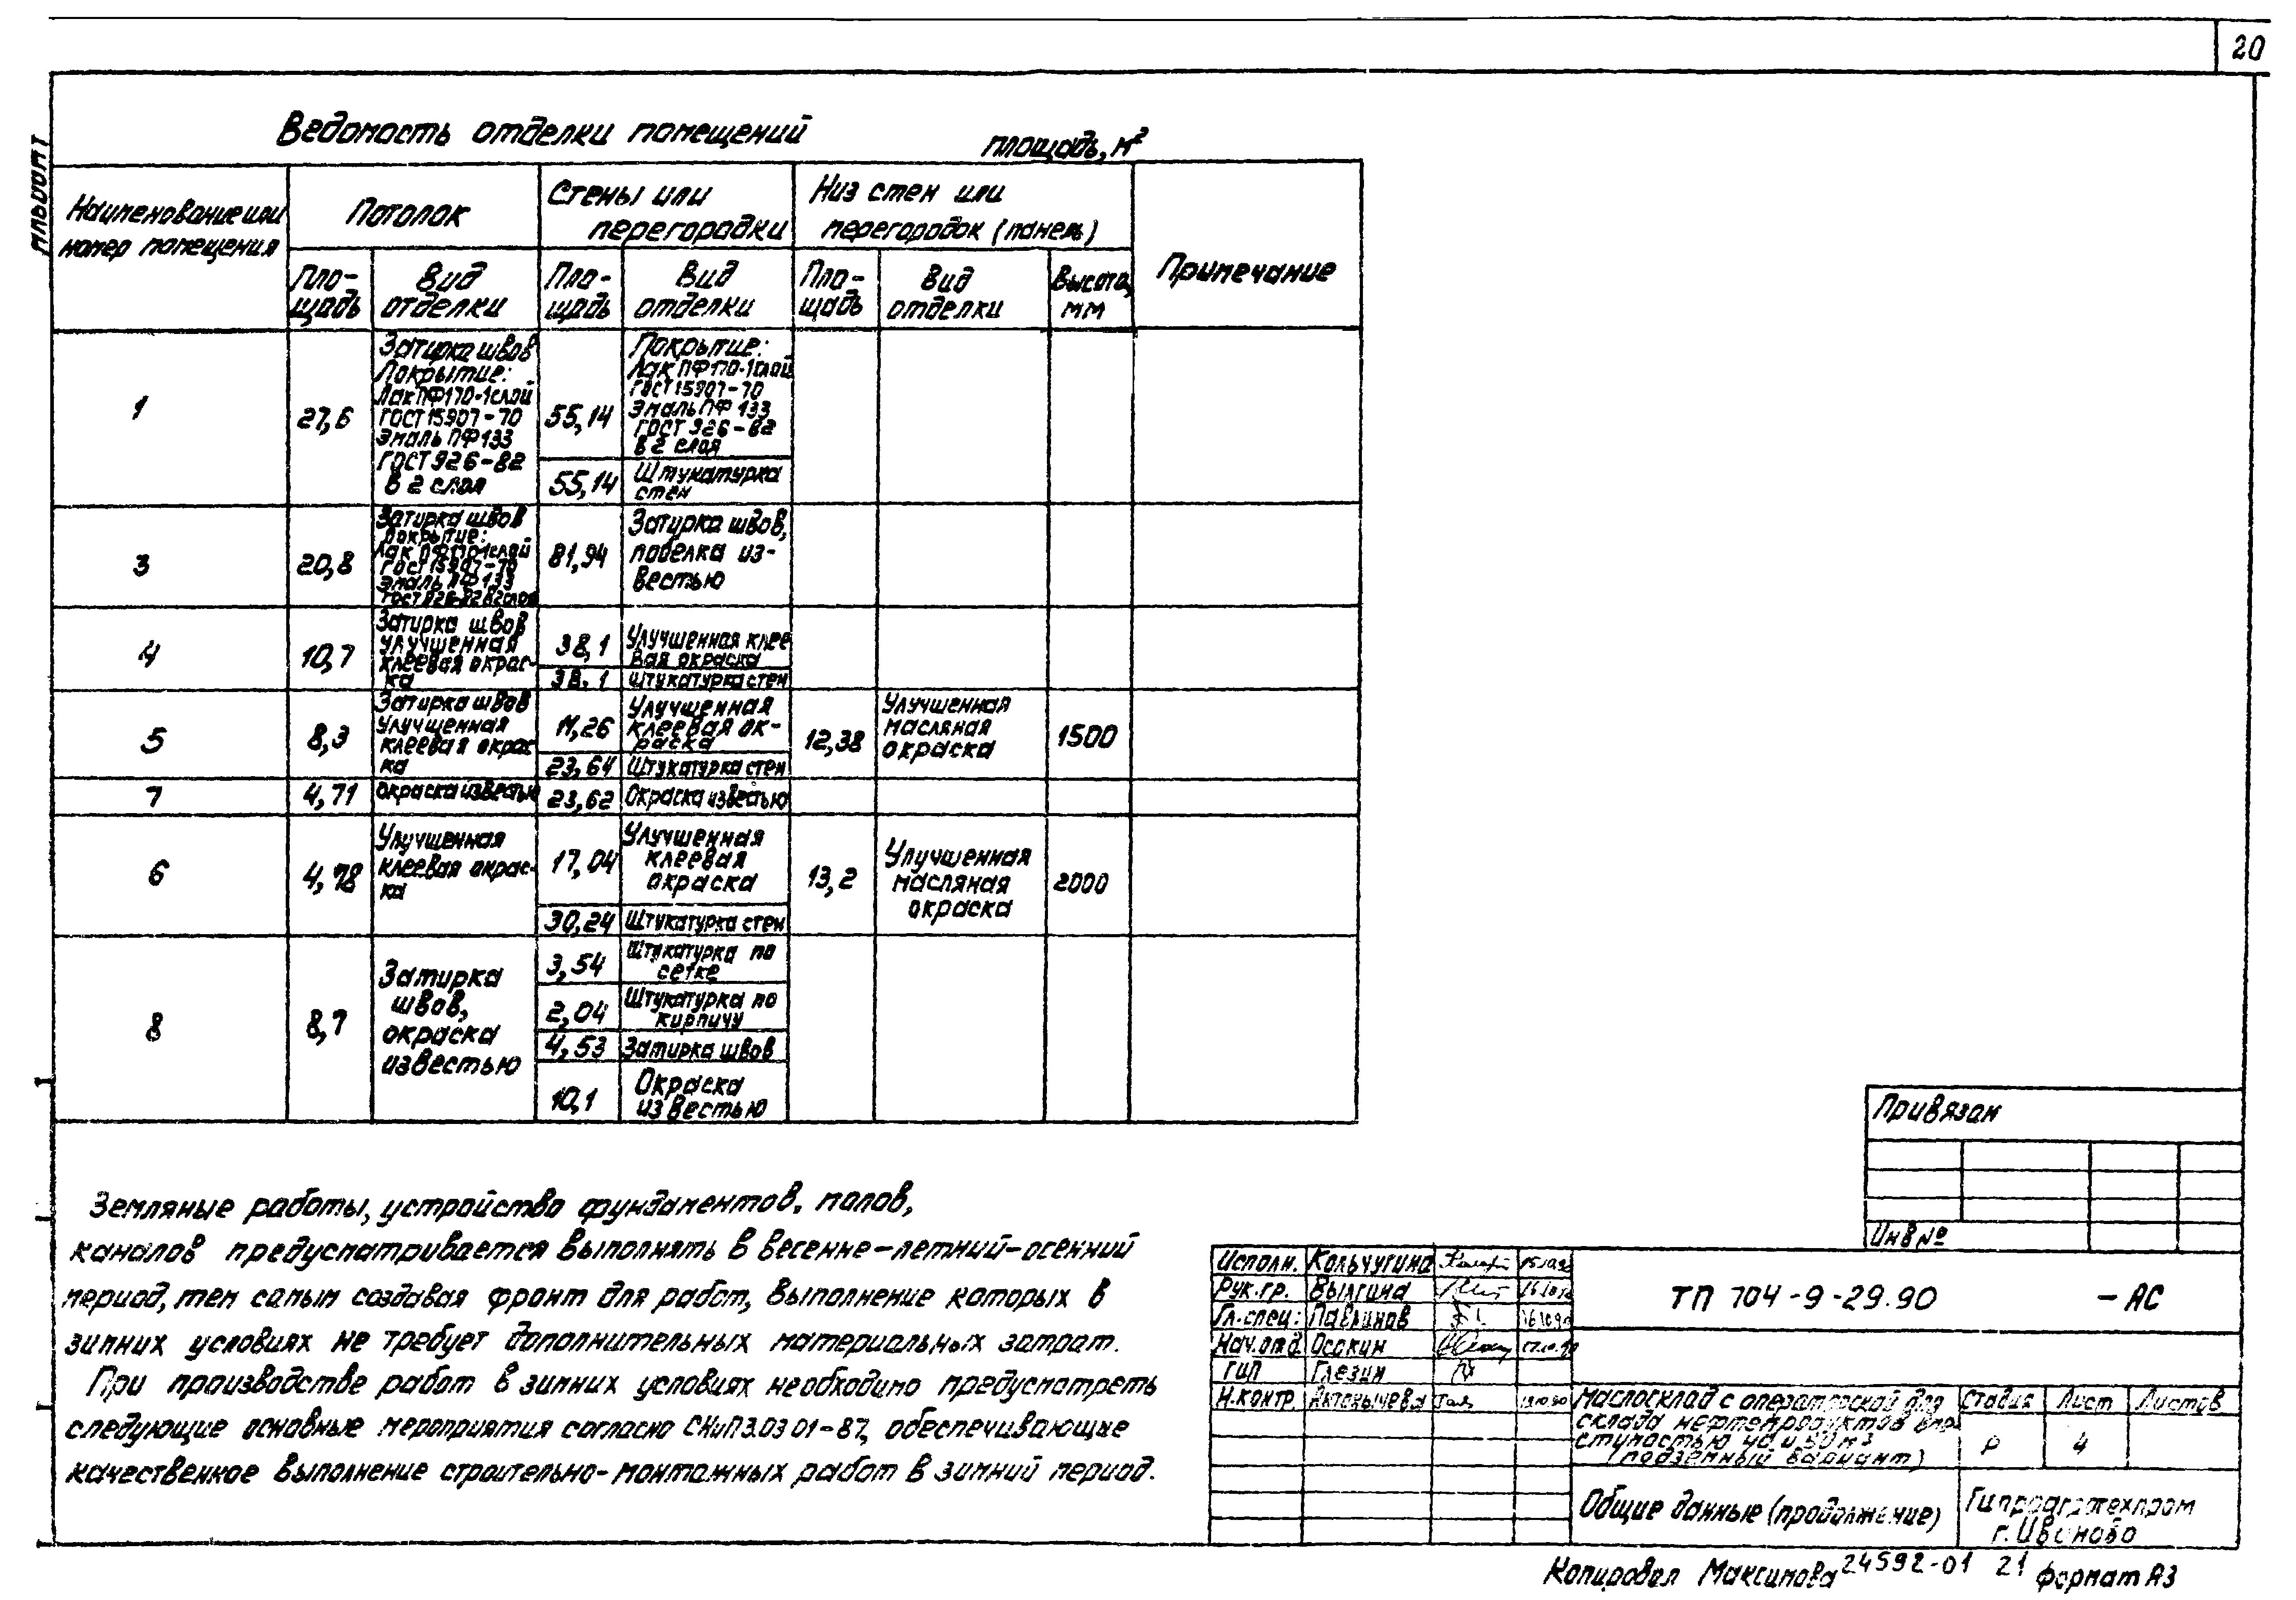 20
Альбом 1
Ведомость отделки помещений
площадь, м²
Наименование или
номер помещения
Потолок
Стены или
перегородки
Низ стен или
перегородок (панель)
Примечание
Пло-
щадь
Вид
отделки
Пло-
щадь
Вид
отделки
Пло-
щадь
Вид
отделки
Высота,
мм
1
27,6
Затирка швов
Покрытие:
Лак ПФ170-1слой
ГОСТ 15907-70
Эмаль ПФ 133
ГОСТ 926-82
в 2 слоя
55,14
Покрытие:
Лак ПФ170-1слой
ГОСТ 15907-70
Эмаль ПФ 133
ГОСТ 926-82
в 2 слоя
55,14
Штукатурка
стен
3
20,8
Затирка швов
Покрытие:
Лак ПФ170-1слой
ГОСТ 15907-70
Эмаль ПФ 133
ГОСТ 926-82 в 2 слоя
81,94
Затирка швов,
побелка из-
вестью
4
10,7
Затирка швов
улучшенная
клеевая окрас-
ка
38,1
Улучшенная клее
вая окраска
38,1
Штукатурка стен
5
8,3
Затирка швов
улучшенная
клеевая окрас
ка
11,26
Улучшенная
клеевая ок-
раска
23,64
Штукатурка стен
12,38
Улучшенная
масляная
окраска
1500
7
4,71
Окраска известью
23,62
Окраска известью
6
4,78
Улучшенная
клеевая окрас-
ка
17,04
Улучшенная
клеевая
окраска
30,24
Штукатурка стен
13,2
Улучшенная
масляная
окраска
2000
8
8,7
Затирка
швов,
окраска
известью
3,54
Штукатурка по
сетке
2,04
Штукатурка по
кирпичу
4,53
Затирка швов
10,1
Окраска
известью
Земляные работы, устройство фундаментов, полов,
каналов предусматривается выполнять в весенне-летний-осенний
период, тем самым создавая фронт для работ, выполнение которых в
зимних условиях не требует дополнительных материальных затрат.
При производстве работ в зимних условиях необходимо предусмотреть
следующие основные мероприятия согласно СНиП 3.03 01-87, обеспечивающие
качественное выполнение строительно-монтажных работ в зимний период.
Привязан
Инв №
Исполн. Кольчугина
Рук.гр. Вылгина
Гл.спец: Павлинов
Нач.отд Осокин
ГИП Глезин
Н.контр Антонычева
ТП 704-9-29.90 -АС
Маслосклад с операторской для
склада нефтепродуктов вме
стимостью 40 и 50 м³
(подземный вариант)
Стадия Лист Листов
Р 4
Общие данные (продолжение)
Гипроагротехпром
г. Иваново
Копировал Максимова 24592-01 21 формат А3